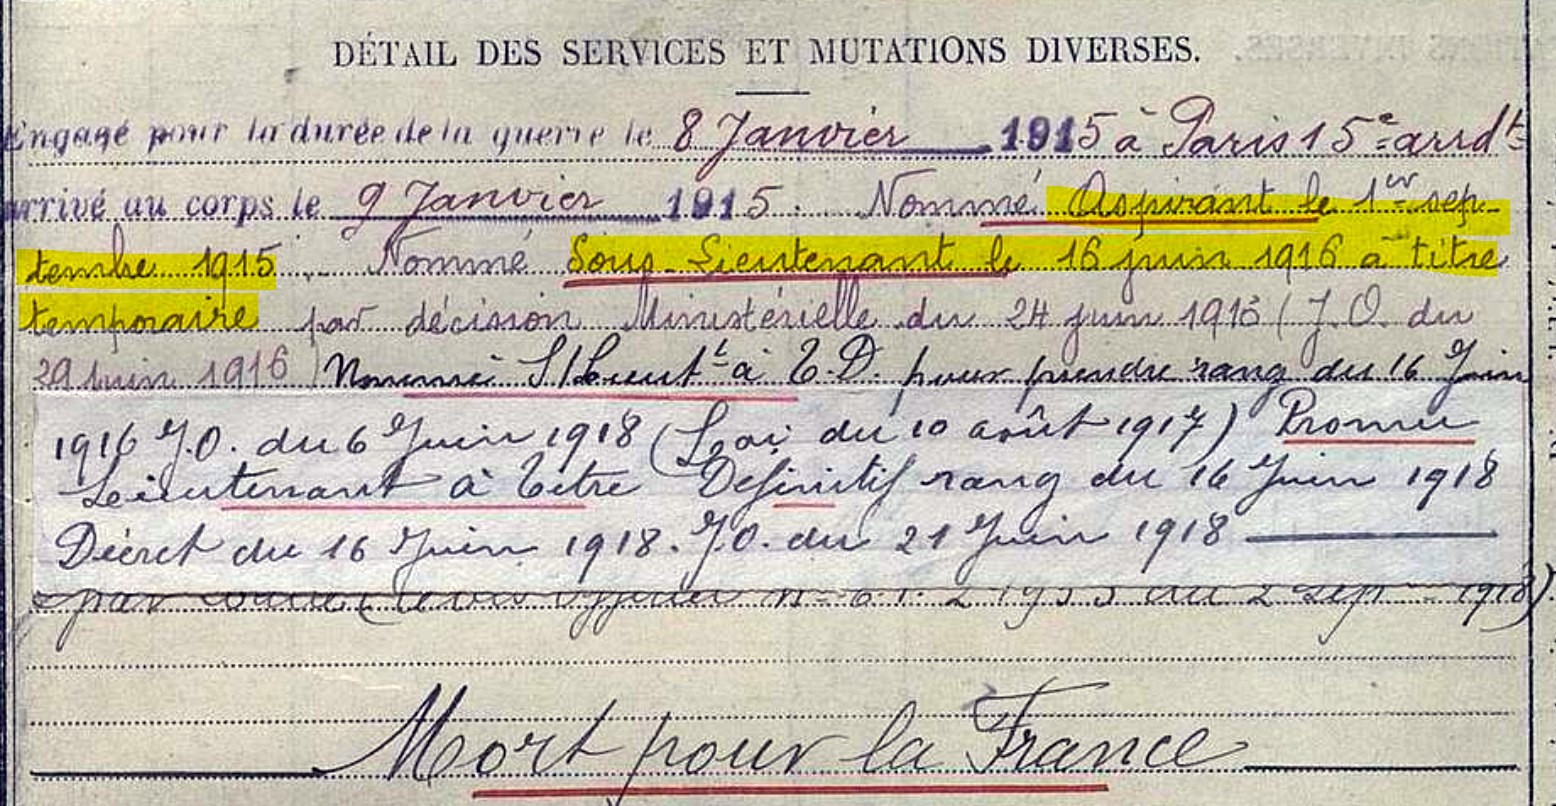 DÉTAIL DES SERVICES ET MUTATIONS DIVERSES.
Engagé pour la durée de la guerre le 8 Janvier 1915 à Paris 15e arrdt
arrivé au corps le 9 Janvier 1915. Nommé Aspirant le 1er sep-
tembre 1915. Nommé Sous-Lieutenant le 16 juin 1916 à titre
temporaire par décision Ministérielle du 24 juin 1916 (J.O. du
29 juin 1916) Nommé S/Lieutt à T.D. pour prendre rang du 16 Juin
1916 J.O. du 6 Juin 1918 (Loi du 10 août 1917) Promu
Lieutenant à Titre Définitif rang du 16 Juin 1918
Décret du 16 Juin 1918. J.O. du 21 Juin 1918
par du 2 sept 1918).
Mort pour la France